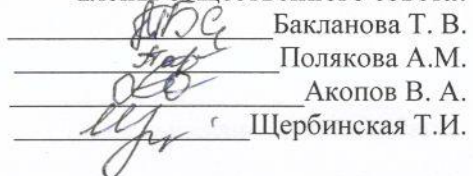 Бакланова Т. В.
Полякова А.М.
Акопов В. А.
Щербинская Т.И.